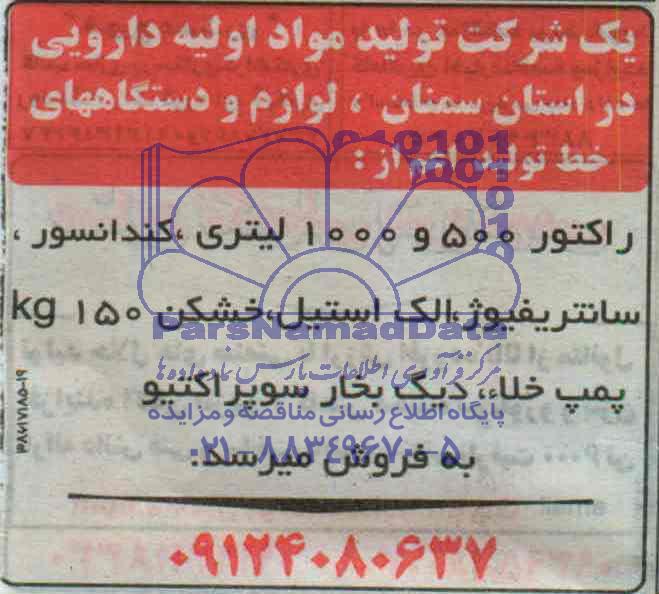 یک شرکت تولید مواد اولیه دارویی
در استان سمنان ، لوازم و دستگاههای
خط تولید اعم از :
راکتور ۵۰۰ و ۱۰۰۰ لیتری ،کندانسور ،
سانتریفیوژ،الک استیل،خشکن ۱۵۰ kg
پمپ خلاء، دیگ بخار سوپر اکتیو
به فروش میرسد.
۰۹۱۲۴۰۸۰۶۳۷
ParsNamadData
مرکز فرآوری اطلاعات پارس نماد داده ها
پایگاه اطلاع رسانی مناقصه و مزایده
۰۲۱-۸۸۳۴۹۶۷۰-۵